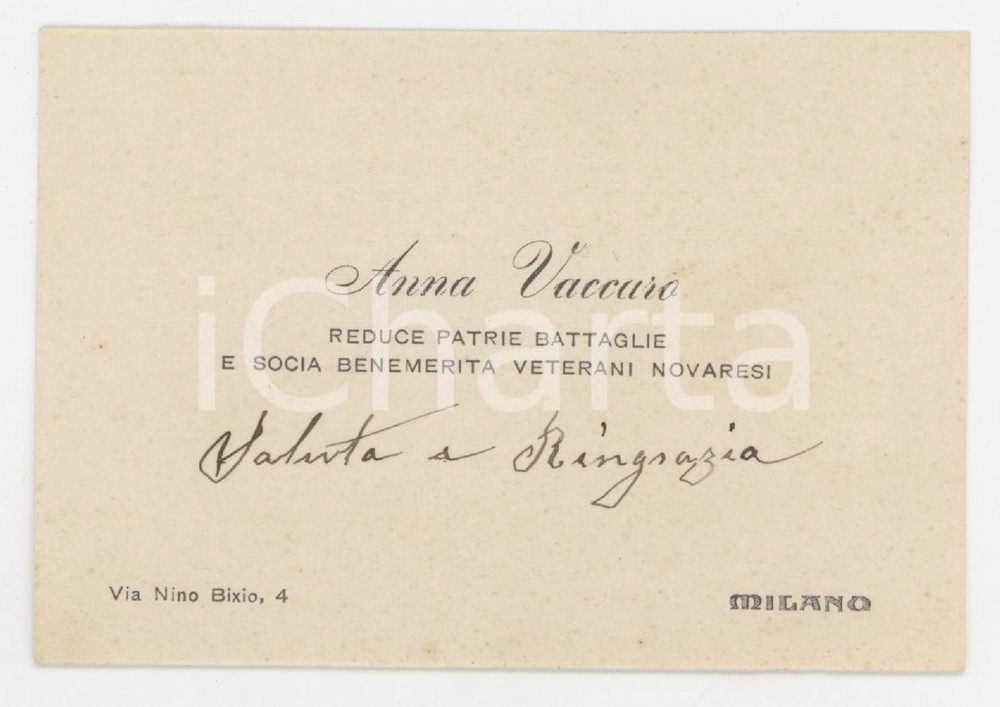 Anna Vaccaro
REDUCE PATRIE BATTAGLIE
E SOCIA BENEMERITA VETERANI NOVARESI
iCharta
Saluta e Ringrazia
Via Nino Bixio, 4
MILANO